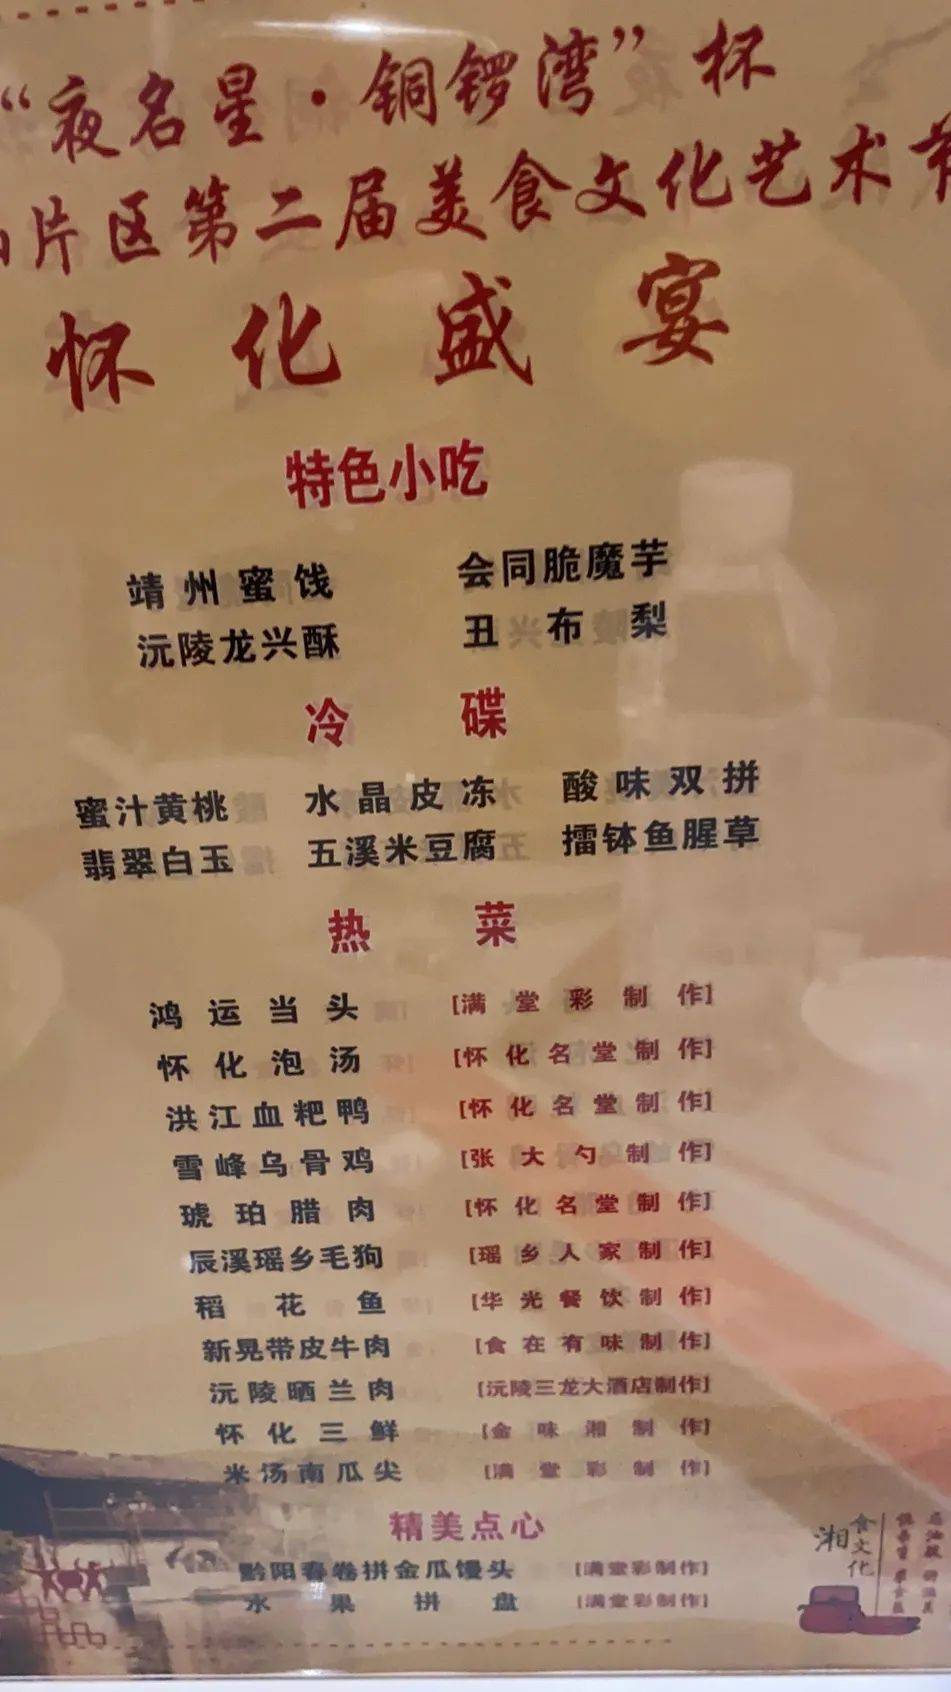 “夜名星·铜锣湾”杯
片区第二届美食文化艺术节
怀化盛宴
特色小吃
靖州蜜饯 会同脆魔芋
沅陵龙兴酥 丑布梨
冷碟
蜜汁黄桃 水晶皮冻 酸味双拼
翡翠白玉 五溪米豆腐 擂钵鱼腥草
热菜
鸿运当头 [满堂彩制作]
怀化泡汤 [怀化名堂制作]
洪江血粑鸭 [怀化名堂制作]
雪峰乌骨鸡 [张大勺制作]
琥珀腊肉 [怀化名堂制作]
辰溪瑶乡毛狗 [瑶乡人家制作]
稻花鱼 [华光餐饮制作]
新晃带皮牛肉 [食在有味制作]
沅陵晒兰肉 [沅陵三龙大酒店制作]
怀化三鲜 [金味湘制作]
米汤南瓜尖 [满堂彩制作]
精美点心
黔阳春卷拼金瓜馒头 [满堂彩制作]
水果拼盘 [满堂彩制作]
湘食文化